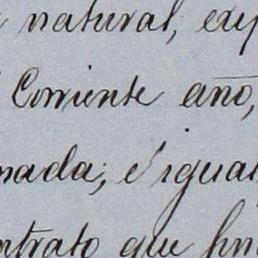 natural, exp
Corriente año,
nada; é igual
ntrato que fin